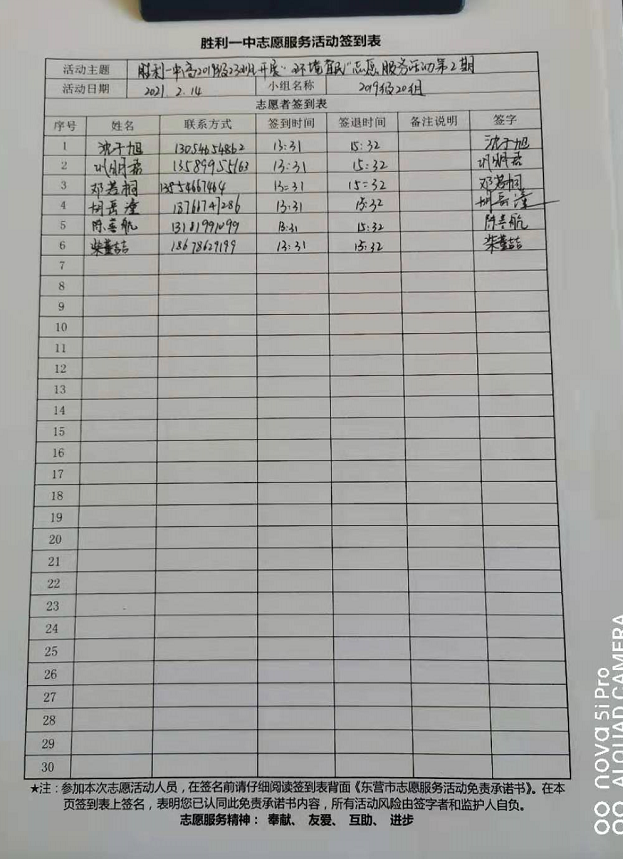 胜利一中志愿服务活动签到表
活动主题 胜利一中高2019级23班开展"环境育民"志愿服务活动第2期
活动日期 2021.2.14 小组名称 2019级20组
志愿者签到表
序号 姓名 联系方式 签到时间 签退时间 备注说明 签字
1 沈于旭 13054654862 13:31 15:32 沈于旭
2 君 13589955163 13:31 15:32 君
3 邓若桐 13554667464 13:31 15:32 邓若桐
4 胡岳潼 18766747286 13:31 15:32 胡岳潼
5 陈奕航 13181991099 13:31 15:32 陈奕航
6 柴董喆 18678629199 13:31 15:32 柴董喆
7
8
9
10
11
12
13
14
15
16
17
18
19
20
21
22
23
24
25
26
27
28
29
30
★注：参加本次志愿活动人员，在签名前请仔细阅读签到表背面《东营市志愿服务活动免责承诺书》。在本
页签到表上签名，表明您已认同此免责承诺书内容，所有活动风险由签字者和监护人自负。
志愿服务精神： 奉献、 友爱、 互助、 进步
nova 5i Pro
AI QUAD CAMERA